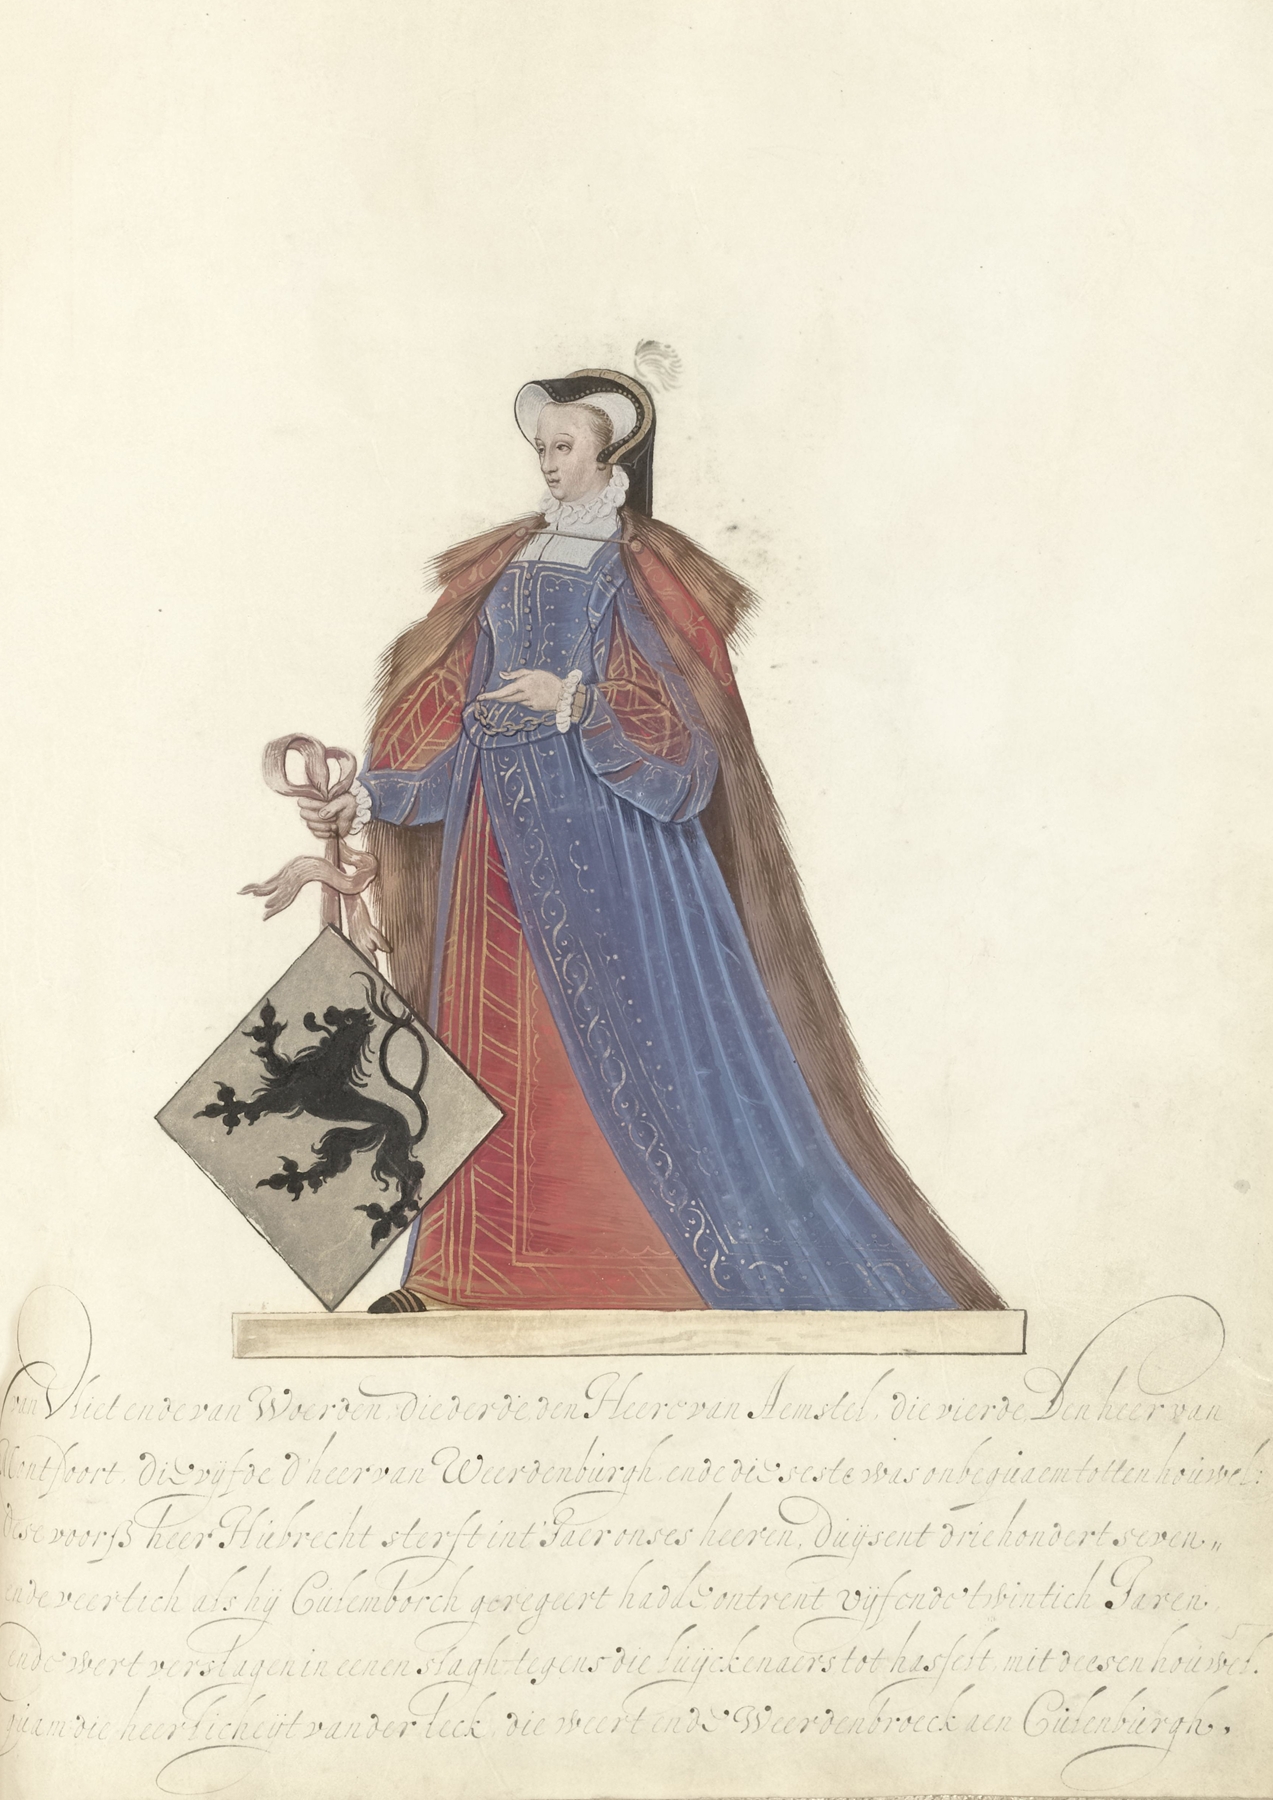 van Vliet ende van Woerden, die derde, den Heere van Aemstel, die vierde Den heer van
Montfoort, die vijfde d'heer van Weerdenburgh, ende die seste was onbequaem totten houwel:
dese voorß heer Hubrecht sterft int Jaer onses heeren, Duijsent driehondert seven„
ende veertich als hij Culemborch geregeert hadde ontrent vijfende twintich Jaren,
ende wert verslagen in eenen slagh tegens die luijckenaers tot hasselt, mit deesen houwel.
quam die heerlicheijt vander leck, die weert ende Weerdenbroeck aen Culenburgh,